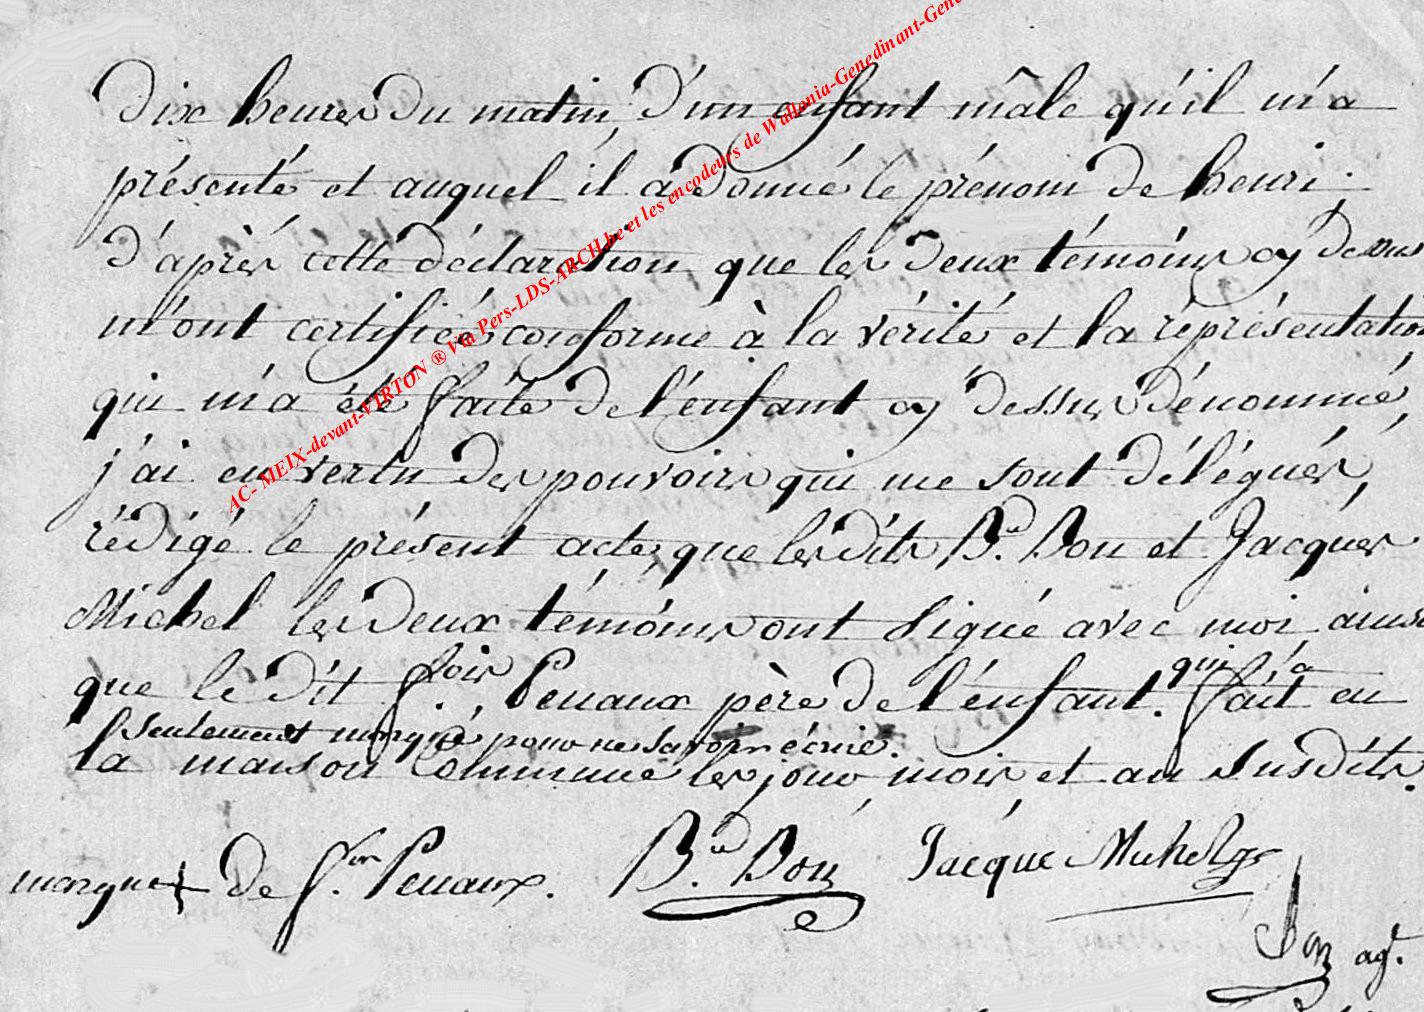 dix heures du matin, d'un enfant mâle qu'il m'a
présenté et auquel il a donné le prénom de henri.
d'après cette déclaration que les deux témoins cy dessus
m'ont certifiée conforme à la vérité et la réprésentation
qui m'a été faite de l'énfant cy dessus dénommé,
j'ai en vertu des pouvoirs qui me sont délégués,
rédigé le présent acte, que les dits B.d Bon et Jacques
Michel les deux témoins ont signé avec moi ainsi
que le dit f.ois Penaux père de l'énfant. qui l'a fait en
seulement marqué, pour ne savoir écrire.
la maison Commune les jour, mois et an susdits.
marque + De f.ois Penaux. B.d Bon Jacque Michel
Bon ag.t
AC- MEIX-devant-VIRTON ® Via Pers-LDS-ARCH.be et les encodeurs de Wallonia-Genedinant-Gene